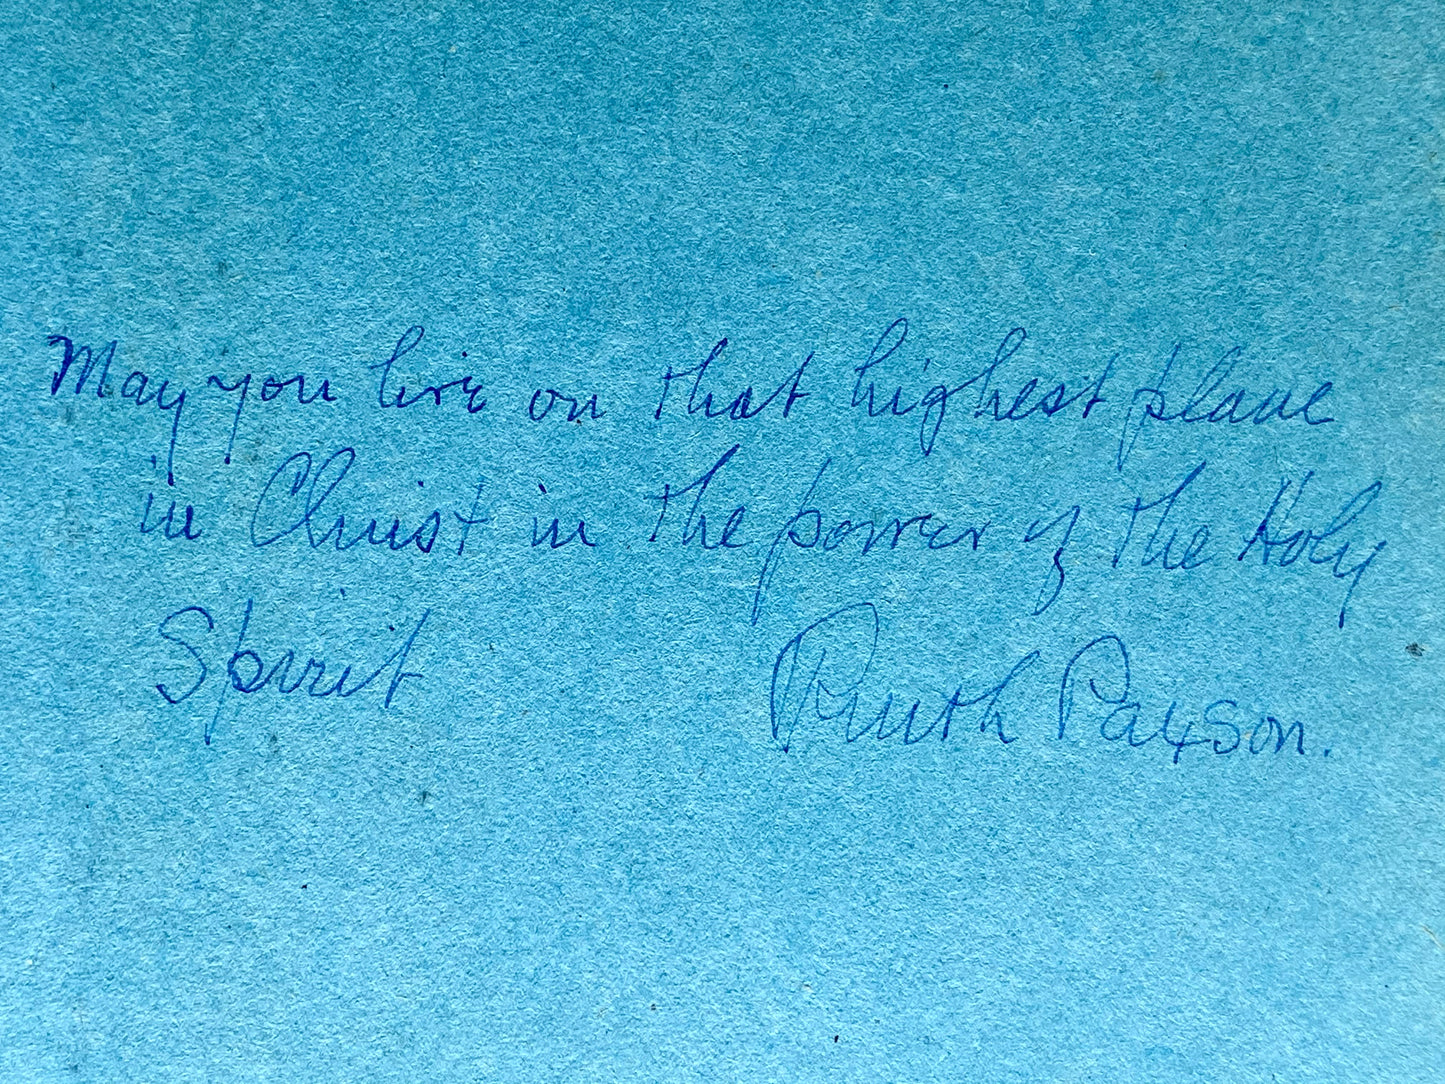 May you live on that highest plane
in Christ in the power of the Holy
Spirit
Ruth Paxson.